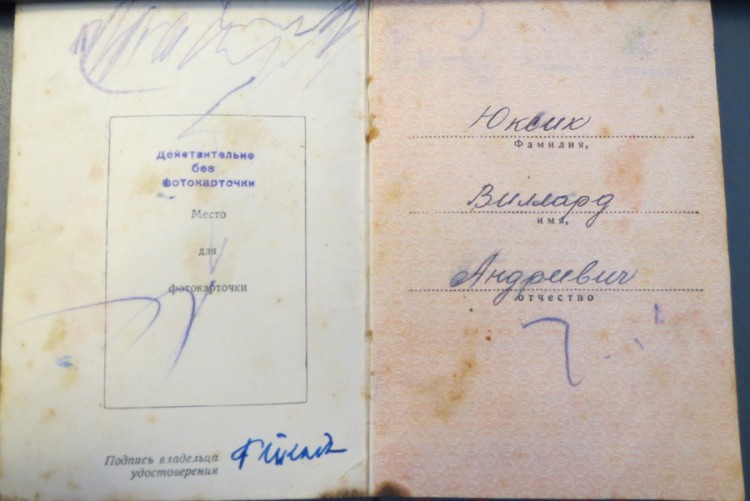 Действительно
без
фотокарточки
Место
для
фотокарточки
Подпись владельца
удостоверения
Юксик
Фамилия,
Виллард
имя,
Андреевич
отчество